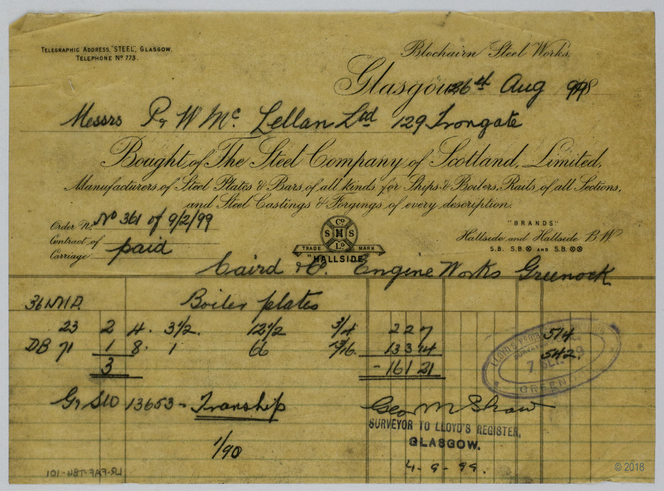 TELEGRAPHIC ADDRESS, "STEEL", GLASGOW.
TELEPHONE No 773.
Blochairn Steel Works,
Glasgow, 26th Aug 1898
Messrs P & W McLellan Ltd 129 Trongate
Bought of The Steel Company of Scotland, Limited,
Manufacturers of Steel Plates & Bars of all kinds for Ships & Boilers, Rails of all Sections,
and Steel Castings & Forgings of every description.
Order No No 361 of 9/2/99
Contract of
Carriage paid
Co
S H S
Lo
TRADE MARK
"HALLSIDE"
"BRANDS"
Hallside and Hallside B.W
S.B. S.B. AND S.B.
Caird & Co. Engine Works Greenock
Boiler plates
23 2 4. 3 1/2. 12 1/2 3/4 2 2 7
DB 71 1 8. 1 66 13 3 14
3 - 16 1 21
514
542
LLOYD'S
7 SEP 99
GREENOCK
Gr S10 13653 - Tranship
Geo M Shaw
SURVEYOR TO LLOYD'S REGISTER,
GLASGOW.
1/90
4. 9. 99.
© 2018